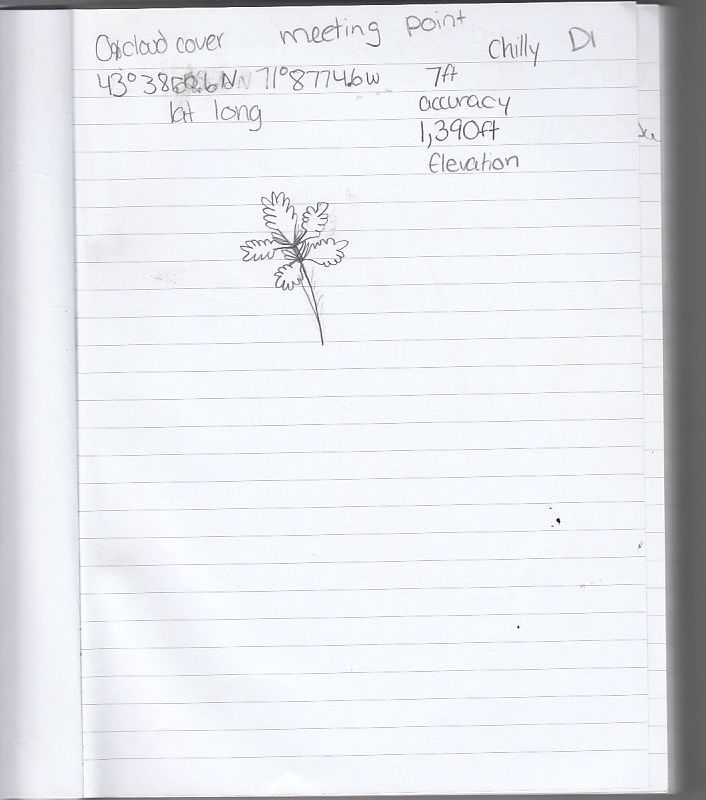 cloud cover meeting point Chilly D1
71°87746W 7ft
lat long accuracy
1,390ft
Elevation